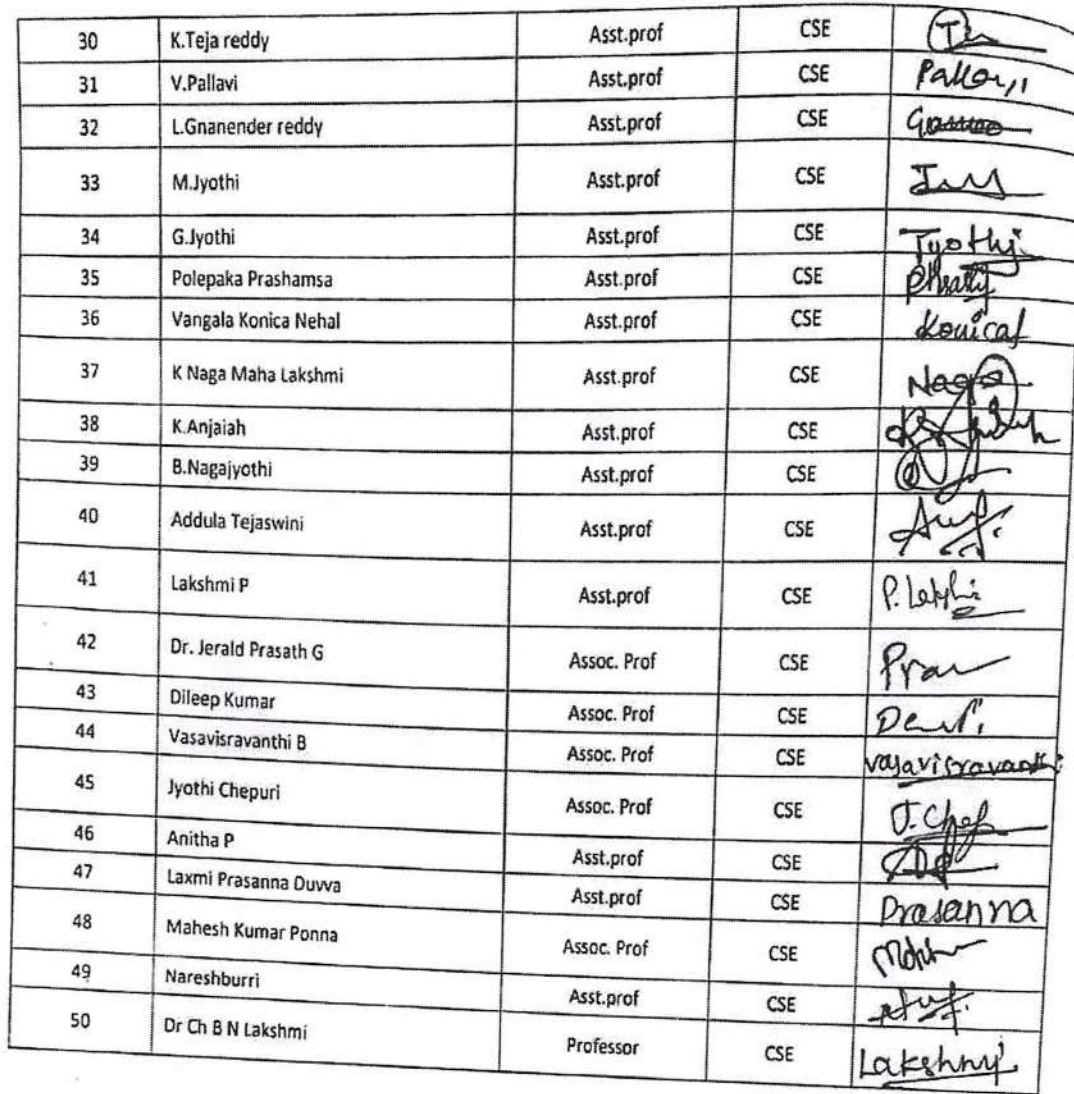 30 K.Teja reddy Asst.prof CSE
31 V.Pallavi Asst.prof CSE
32 L.Gnanender reddy Asst.prof CSE
33 M.Jyothi Asst.prof CSE
34 G.Jyothi Asst.prof CSE Jyothi
35 Polepaka Prashamsa Asst.prof CSE
36 Vangala Konica Nehal Asst.prof CSE
37 K Naga Maha Lakshmi Asst.prof CSE Naga
38 K.Anjaiah Asst.prof CSE
39 B.Nagajyothi Asst.prof CSE
40 Addula Tejaswini Asst.prof CSE
41 Lakshmi P Asst.prof CSE
42 Dr. Jerald Prasath G Assoc. Prof CSE
43 Dileep Kumar Assoc. Prof CSE
44 Vasavisravanthi B Assoc. Prof CSE vasavisravanthi
45 Jyothi Chepuri Assoc. Prof CSE
46 Anitha P Asst.prof CSE
47 Laxmi Prasanna Duvva Asst.prof CSE Prasanna
48 Mahesh Kumar Ponna Assoc. Prof CSE
49 Nareshburri Asst.prof CSE
50 Dr Ch B N Lakshmi Professor CSE Lakshmi